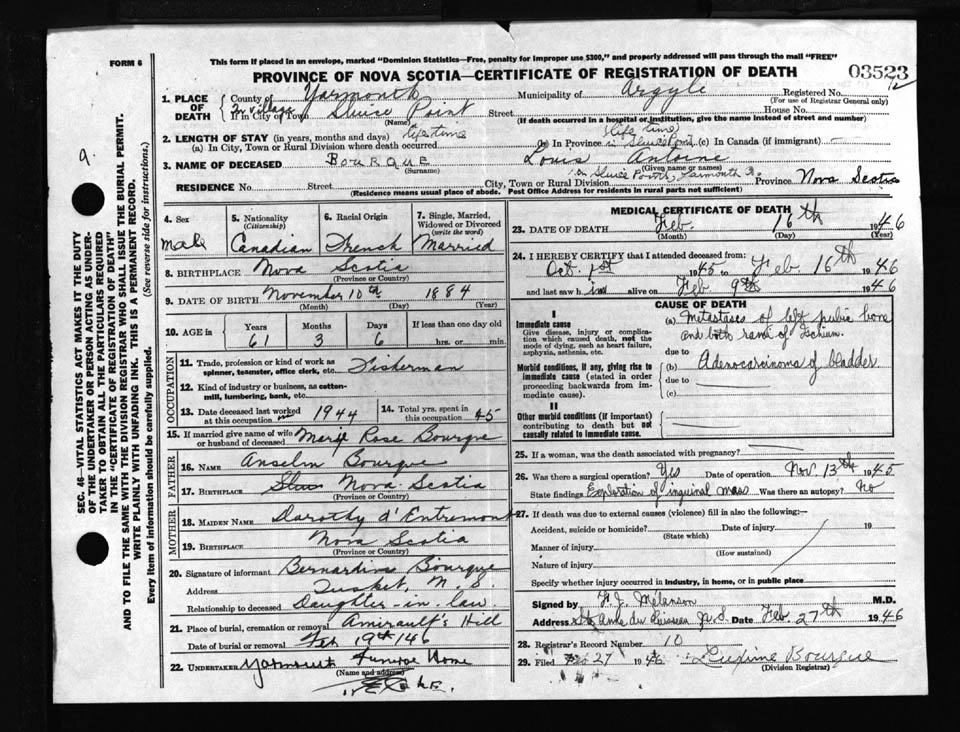 FORM 6
This form if placed in an envelope, marked "Dominion Statistics—Free, penalty for improper use $300," and properly addressed will pass through the mail "FREE"
PROVINCE OF NOVA SCOTIA—CERTIFICATE OF REGISTRATION OF DEATH
03523
12
9.
SEC. 46—VITAL STATISTICS ACT MAKES IT THE DUTY
OF THE UNDERTAKER OR PERSON ACTING AS UNDER-
TAKER TO OBTAIN ALL THE PARTICULARS REQUIRED
IN THE "CERTIFICATE OF REGISTRATION OF DEATH"
AND TO FILE THE SAME WITH THE DIVISION REGISTRAR WHO SHALL ISSUE THE BURIAL PERMIT.
WRITE PLAINLY WITH UNFADING INK. THIS IS A PERMANENT RECORD.
Every item of information should be carefully supplied. (See reverse side for instructions.)
1. PLACE OF DEATH County of Yarmouth Municipality of Argyle Registered No.
(For use of Registrar General only)
If in City or Town In village Sluice Point Street House No.
(Name) (If death occurred in a hospital or institution, give the name instead of street and number)
2. LENGTH OF STAY (in years, months and days) life time (life time)
(a) In City, Town or Rural Division where death occurred (b) In Province in Sluice Point (c) In Canada (if immigrant) —
3. NAME OF DECEASED BOURQUE Louis Antoine
(Surname) (Given name or names)
RESIDENCE No. Street City, Town or Rural Division in Sluice Point, Yarmouth Co. Province Nova Scotia
(Residence means usual place of abode. Post Office Address for residents in rural parts not sufficient)
4. Sex 5. Nationality (Citizenship) 6. Racial Origin 7. Single, Married, Widowed or Divorced (write the word)
male Canadian French Married
8. BIRTHPLACE Nova Scotia
(Province or Country)
9. DATE OF BIRTH November 10th 1884
(Month) (Day) (Year)
10. AGE in Years Months Days If less than one day old
61 3 6 hrs. or min.
OCCUPATION
11. Trade, profession or kind of work as spinner, teamster, office clerk, etc. Fisherman
12. Kind of industry or business, as cotton-mill, lumbering, bank, etc.
13. Date deceased last worked at this occupation in 1944 14. Total yrs. spent in this occupation 45
15. If married give name of wife or husband of deceased Marie Rose Bourque
FATHER
16. NAME Anselm Bourque
17. BIRTHPLACE Nova Scotia
(Province or Country)
MOTHER
18. MAIDEN NAME Dorothy d'Entremont
19. BIRTHPLACE Nova Scotia
(Province or Country)
20. Signature of informant Bernardine Bourque
Address Tusket, N.S.
Relationship to deceased Daughter-in-law
21. Place of burial, cremation or removal Amirault's Hill
Date of burial or removal Feb 19th 1946
22. UNDERTAKER Yarmouth Funeral Home
(Name and address)
MEDICAL CERTIFICATE OF DEATH
23. DATE OF DEATH Feb. 16th 1946
(Month) (Day) (Year)
24. I HEREBY CERTIFY that I attended deceased from:
Oct. 1st 1945 to Feb 16th 1946
and last saw h im alive on Feb 9th 1946
CAUSE OF DEATH
I
Immediate cause
Give disease, injury or complication which caused death, not the mode of dying, such as heart failure, asphyxia, asthenia, etc.
(a) Metastases of left pubic bone
and both rami of Ischium.
due to
Morbid conditions, if any, giving rise to immediate cause (stated in order proceeding backwards from immediate cause).
(b) Adenocarcinoma of bladder
due to
(c)
II
Other morbid conditions (if important) contributing to death but not causally related to immediate cause.
25. If a woman, was the death associated with pregnancy?
26. Was there a surgical operation? Yes Date of operation Nov. 13th 1945
State findings Exploration of inguinal mass Was there an autopsy? No
27. If death was due to external causes (violence) fill in also the following:—
Accident, suicide or homicide? Date of injury 19
(State which)
Manner of injury
(How sustained)
Nature of injury
Specify whether injury occurred in industry, in home, or in public place
Signed by F. J. Melanson M.D.
Address Ste Anne du Ruisseau N.S. Date Feb. 27th 1946
28. Registrar's Record Number 10
29. Filed Feb 27 1946 Bourque
(Division Registrar)